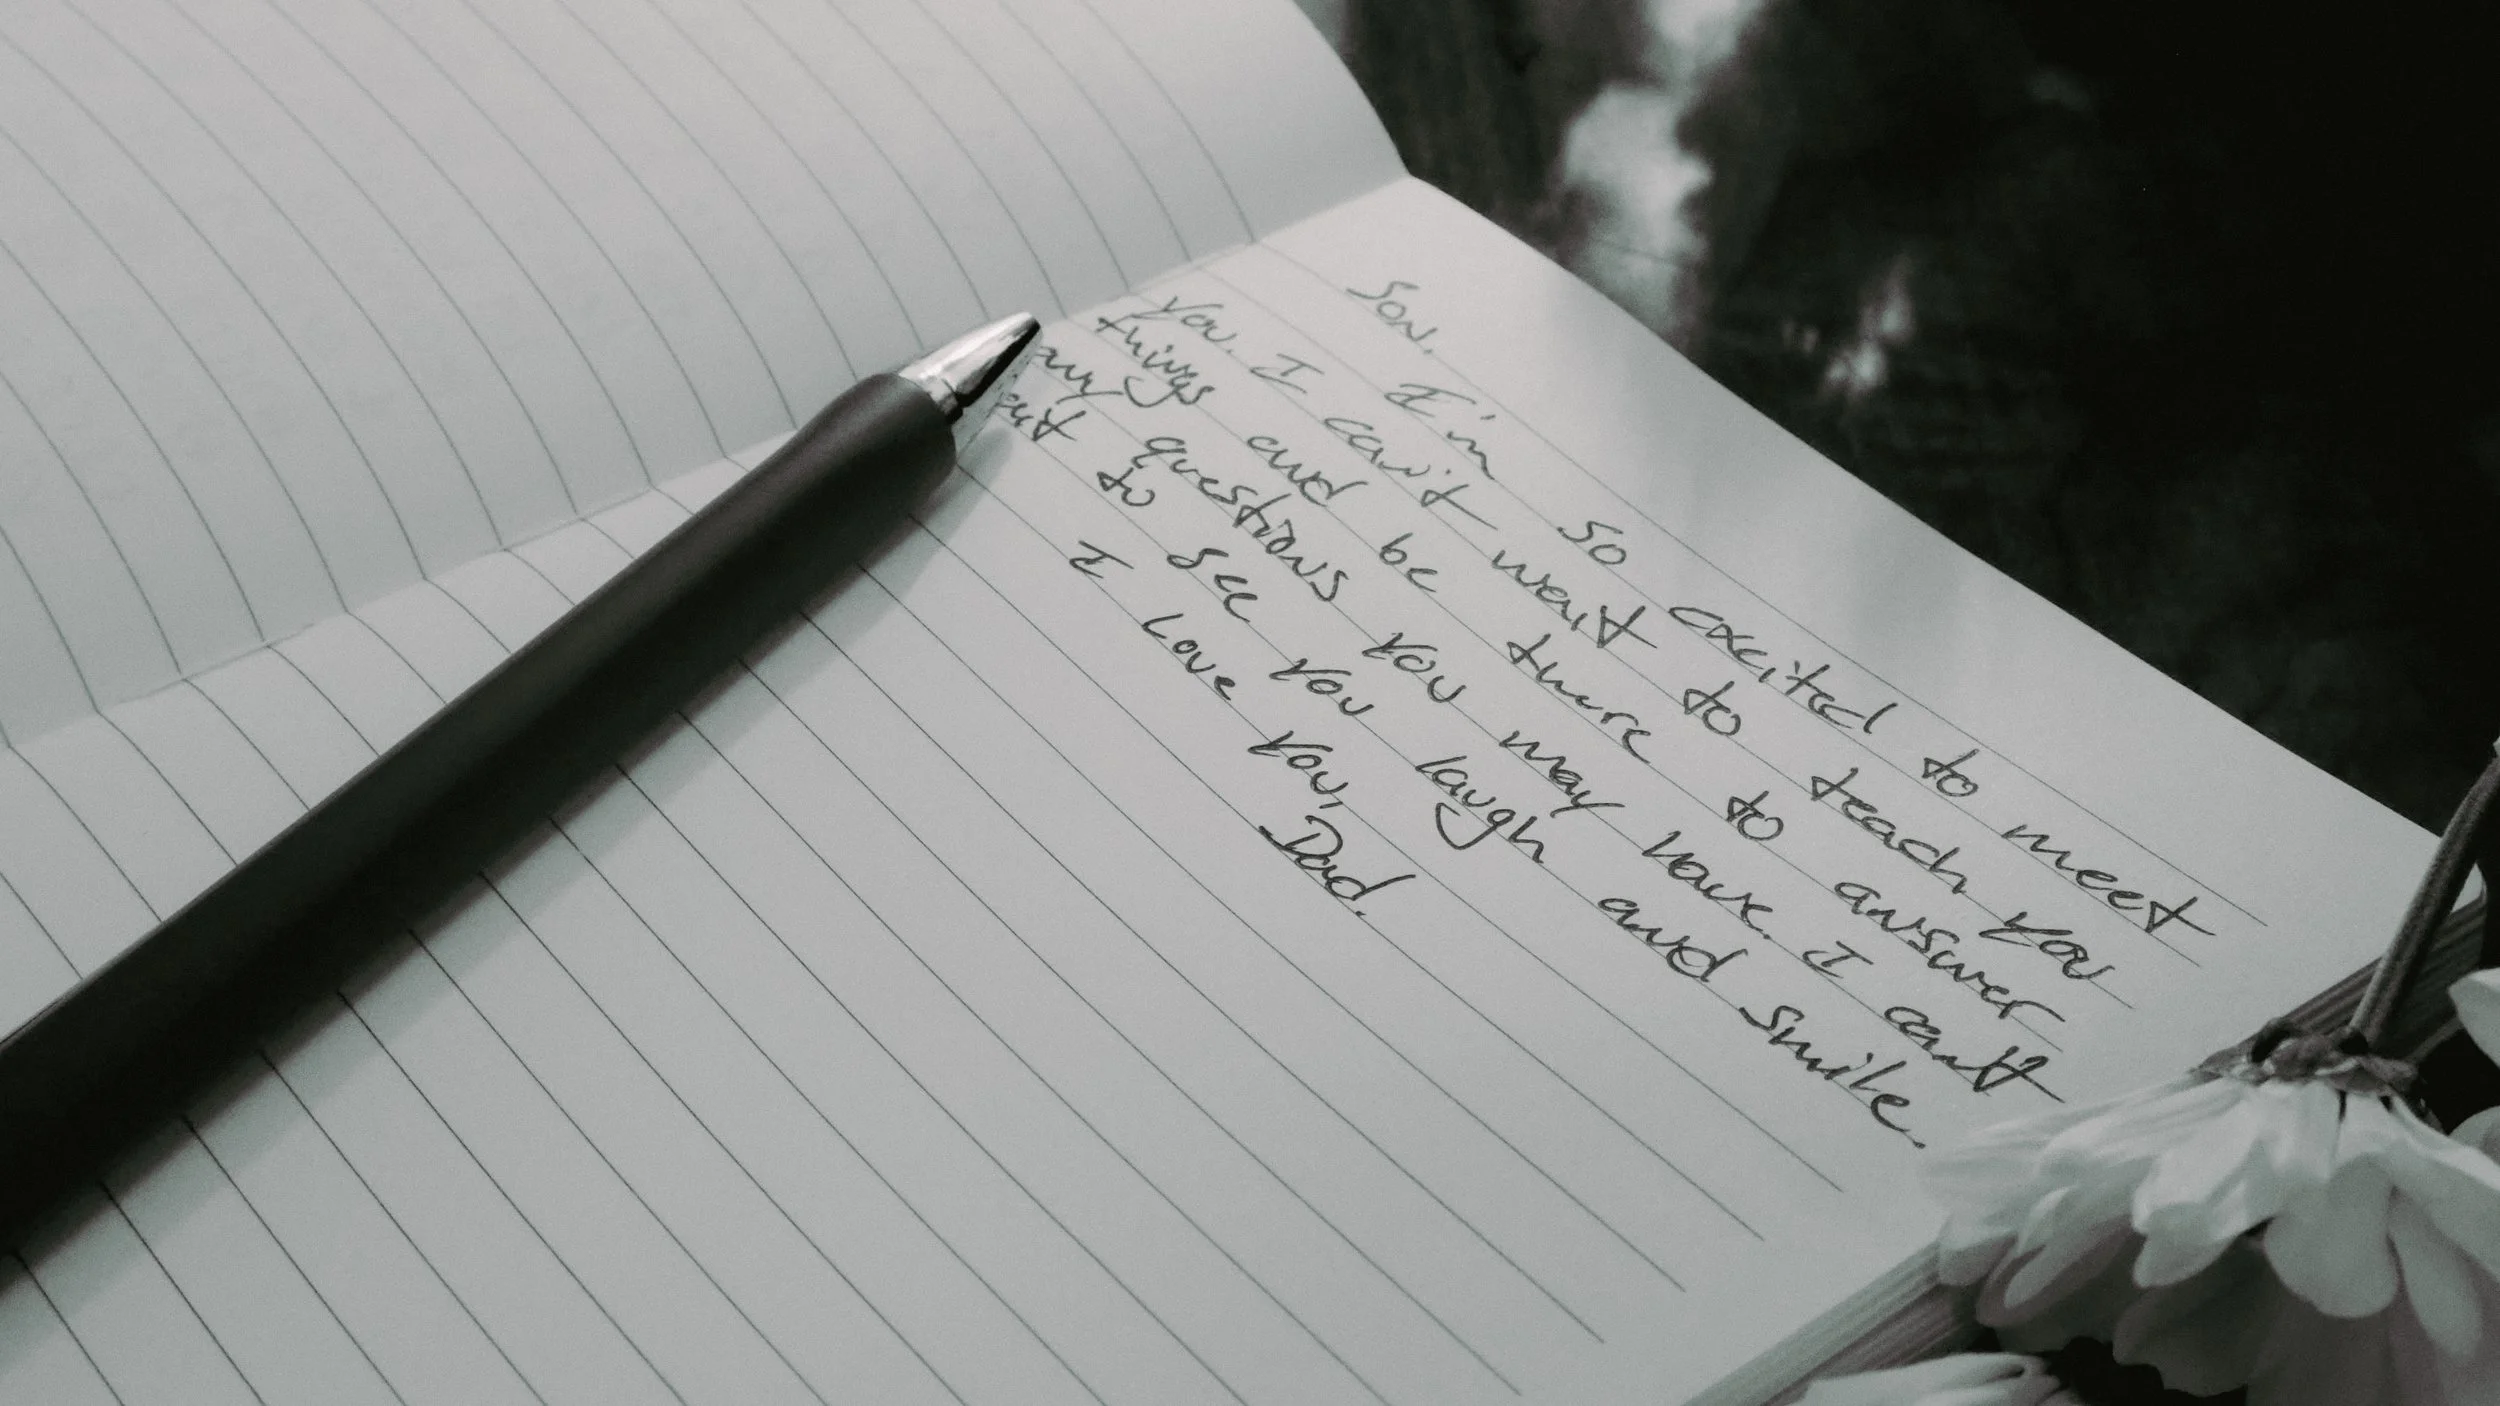 Son,
I'm so excited to meet
you. I can't wait to teach you
things and be there to answer
any questions you may have. I can't
wait to see you laugh and smile.
I love you,
Dad.